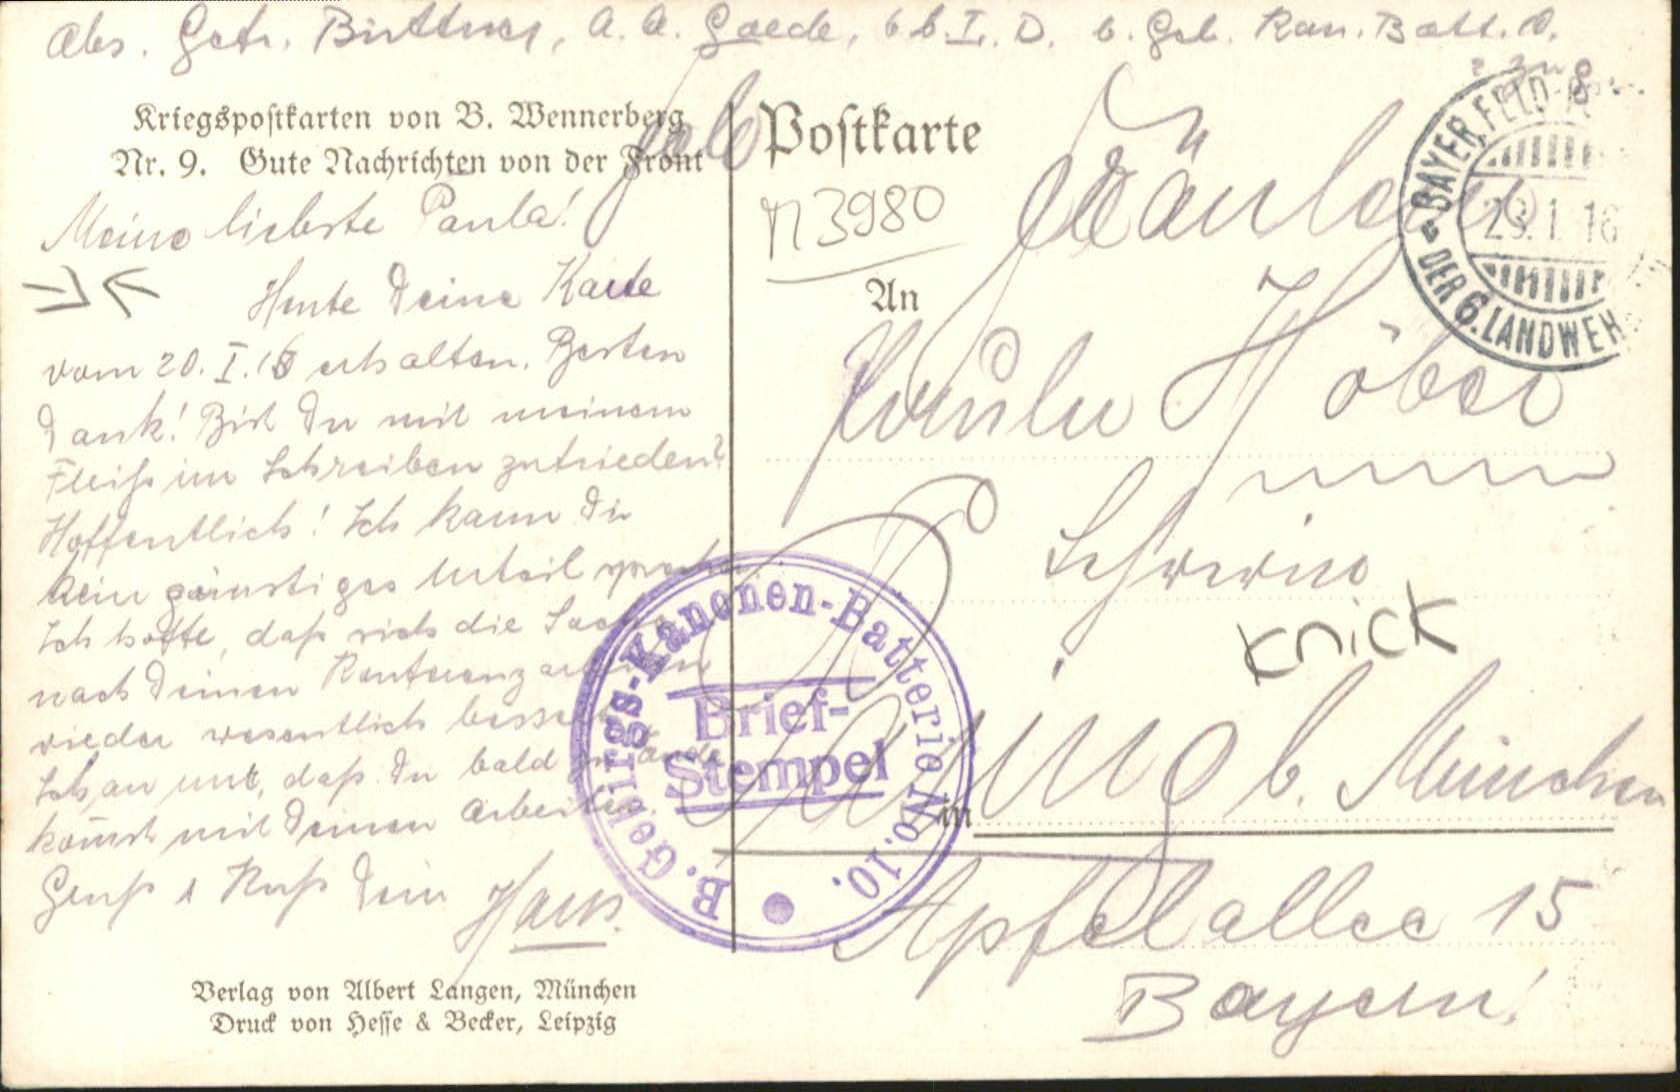 Abs. Gefr. Büttner, A. A. Gaede, 6. b. L. D. b. Geb. Kan. Batt. 10.
Kriegspostkarten von B. Wennerberg
Nr. 9. Gute Nachrichten von der Front
Meine liebste Paula!
Heute Deine Karte
vom 20. I. 16 erhalten. Besten
Dank! Bist Du mit meinem
Fleiß im Schreiben zufrieden?
Hoffentlich! Ich kann Dir
kein günstiges Urteil
Ich hoffe, daß sich die Sache
nach Deinen
wieder wesentlich bessert
daß Du bald zu Ende
kommst mit Deinen Arbeiten.
Gruß & Kuß Dein Hans.
Verlag von Albert Langen, München
Druck von Hesse & Becker, Leipzig
Postkarte
n3980
An
Fräulein
Paula Höber
Pasing b. München
in
Apfelallee 15
Bayern!
Knick
BAYER. FELD-
29. 1. 16
DER 6. LANDWEH
B. Gebirgs-Kanonen-Batterie No. 10.
Brief-
Stempel